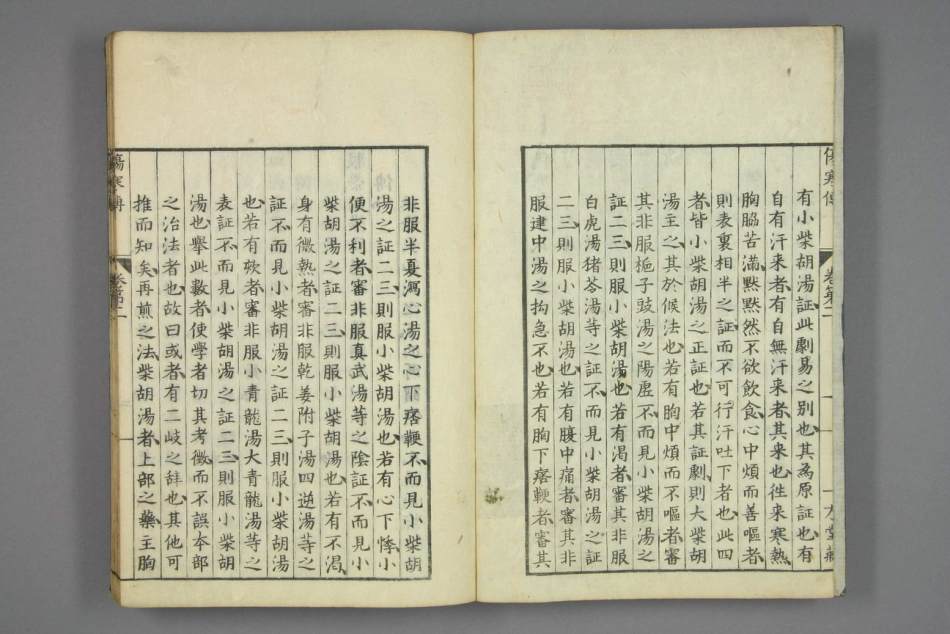 傷寒傳 卷第二 六堂藏
有小柴胡湯証此劇易之別也其為原証也有
自有汗来者有自無汗来者其来也徃来寒熱
胸脇苦滿黙黙然不欲飲食心中煩而善嘔者
則表裏相半之証而不可行汗吐下者也此四
者皆小柴胡湯之正証也若其証劇則大柴胡
湯主之其於候法也若有胸中煩而不嘔者審
其非服梔子豉湯之陽虚不而見小柴胡湯之
証二三則服小柴胡湯也若有渇者審其非服
白虎湯猪苓湯等之証不而見小柴胡湯之証
二三則服小柴胡湯也若有腹中痛者審其非
服建中湯之拘急不也若有胸下痞鞕者審其
非服半夏瀉心湯之心下痞鞕不而見小柴胡
湯之証二三則服小柴胡湯也若有心下悸小
便不利者審非服真武湯等之陰証不而見小
柴胡湯之証二三則服小柴胡湯也若有不渇
身有微熱者審非服乾姜附子湯四逆湯等之
証不而見小柴胡湯之証二三則服小柴胡湯
也若有欬者審非服小青龍湯大青龍湯等之
表証不而見小柴胡湯之証二三則服小柴胡
湯也舉此數者使學者切其考徴而不誤本部
之治法者也故曰或者有二岐之辞也其他可
推而知矣再煎之法柴胡湯者上部之藥主胸
傷寒傳 卷第二